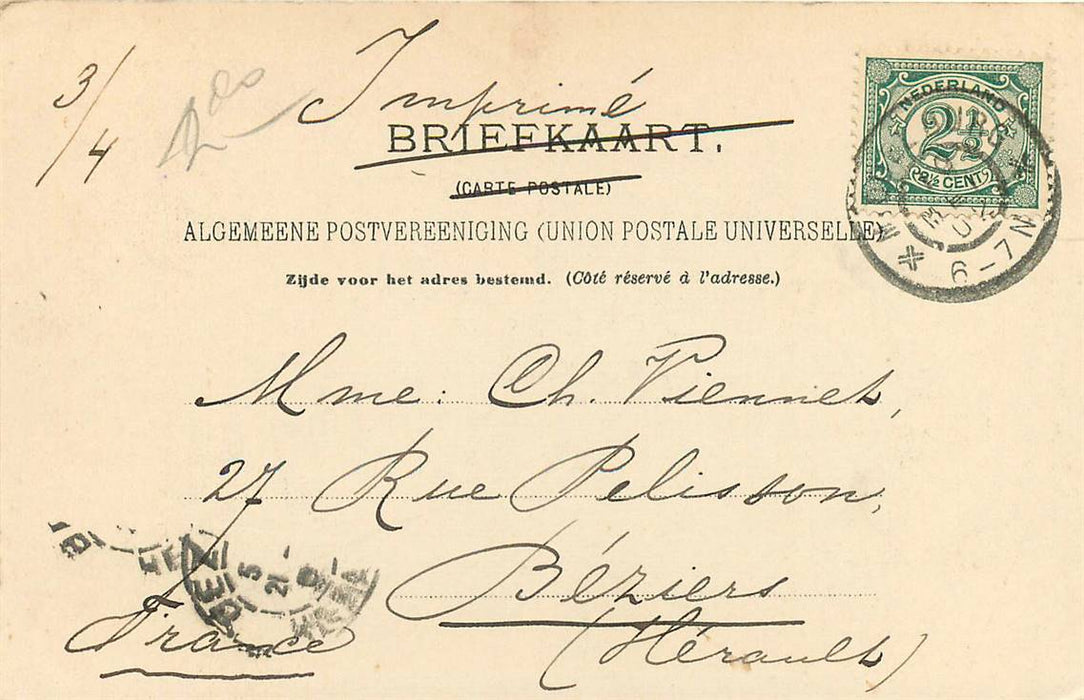 3/4
Imprimé
BRIEFKAART.
(CARTE POSTALE)
ALGEMEENE POSTVEREENIGING (UNION POSTALE UNIVERSELLE)
Zijde voor het adres bestemd. (Côté réservé à l'adresse.)
NEDERLAND
2½
2½ CENT
6-7 N
Mme: Ch. Viennet,
27 Rue Pelisson,
Béziers
(Hérault)
France
5
21